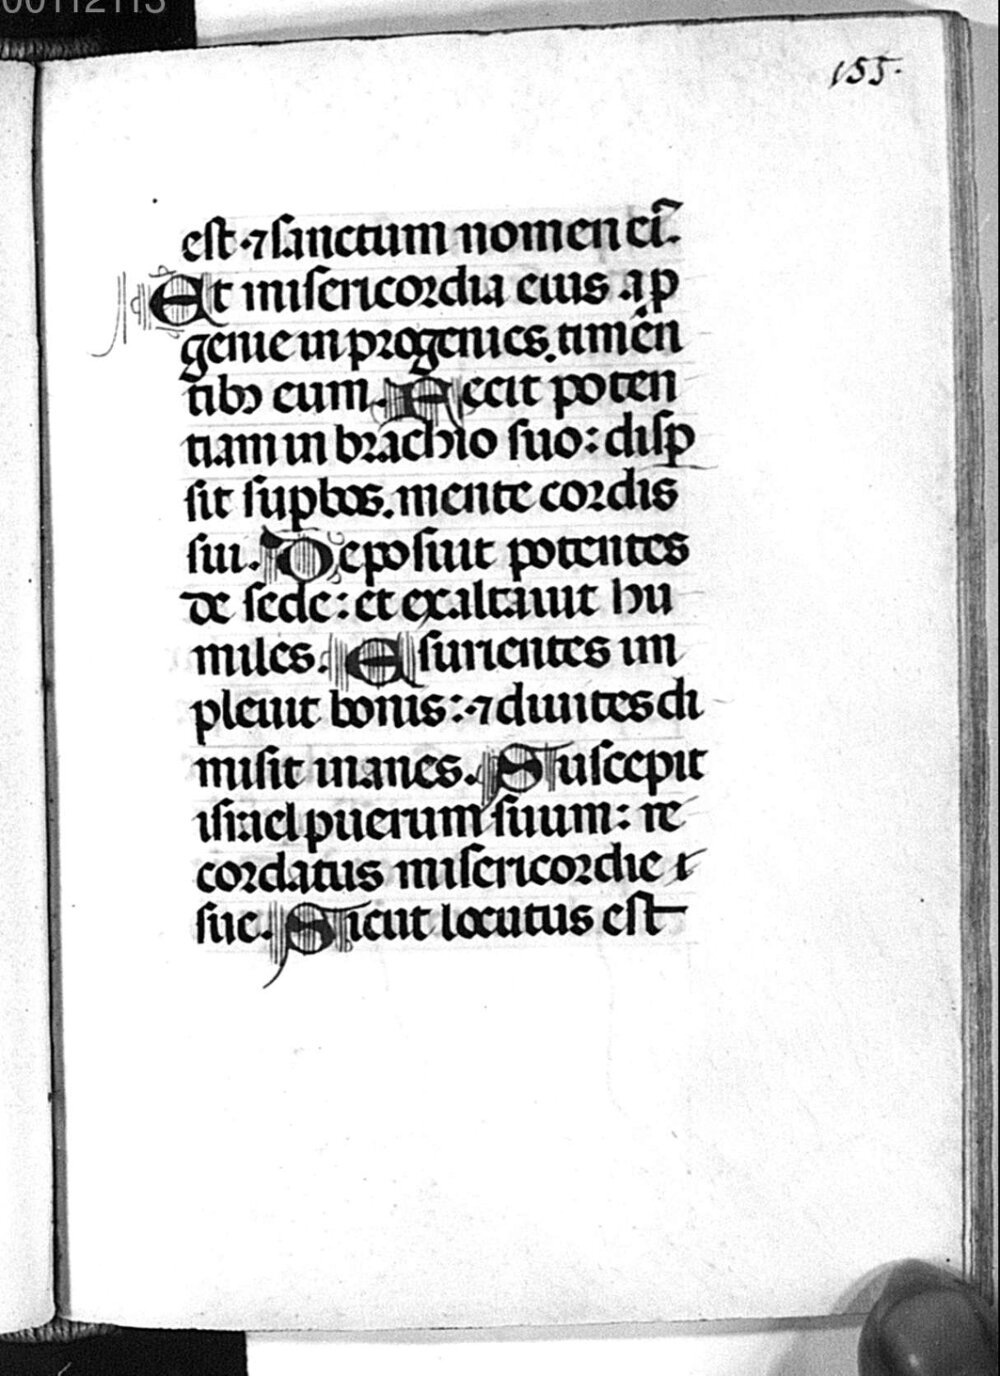 00112113
155.
est ⁊ sanctum nomen ei᷒.
Et misericordia eius a ꝓ
genie in progenies. timēn
tibꝫ eum. Fecit poten
tiam in brachio suo: disꝑ
sit suꝑbos. mente cordis
sui. Deposuit potentes
de sede: et exaltauit hu
miles. Esurientes im
pleuit bonis: ⁊ diuites di
misit inanes. Suscepit
israel puerum suum: re
cordatus misericordie
sue. Sicut locutus est